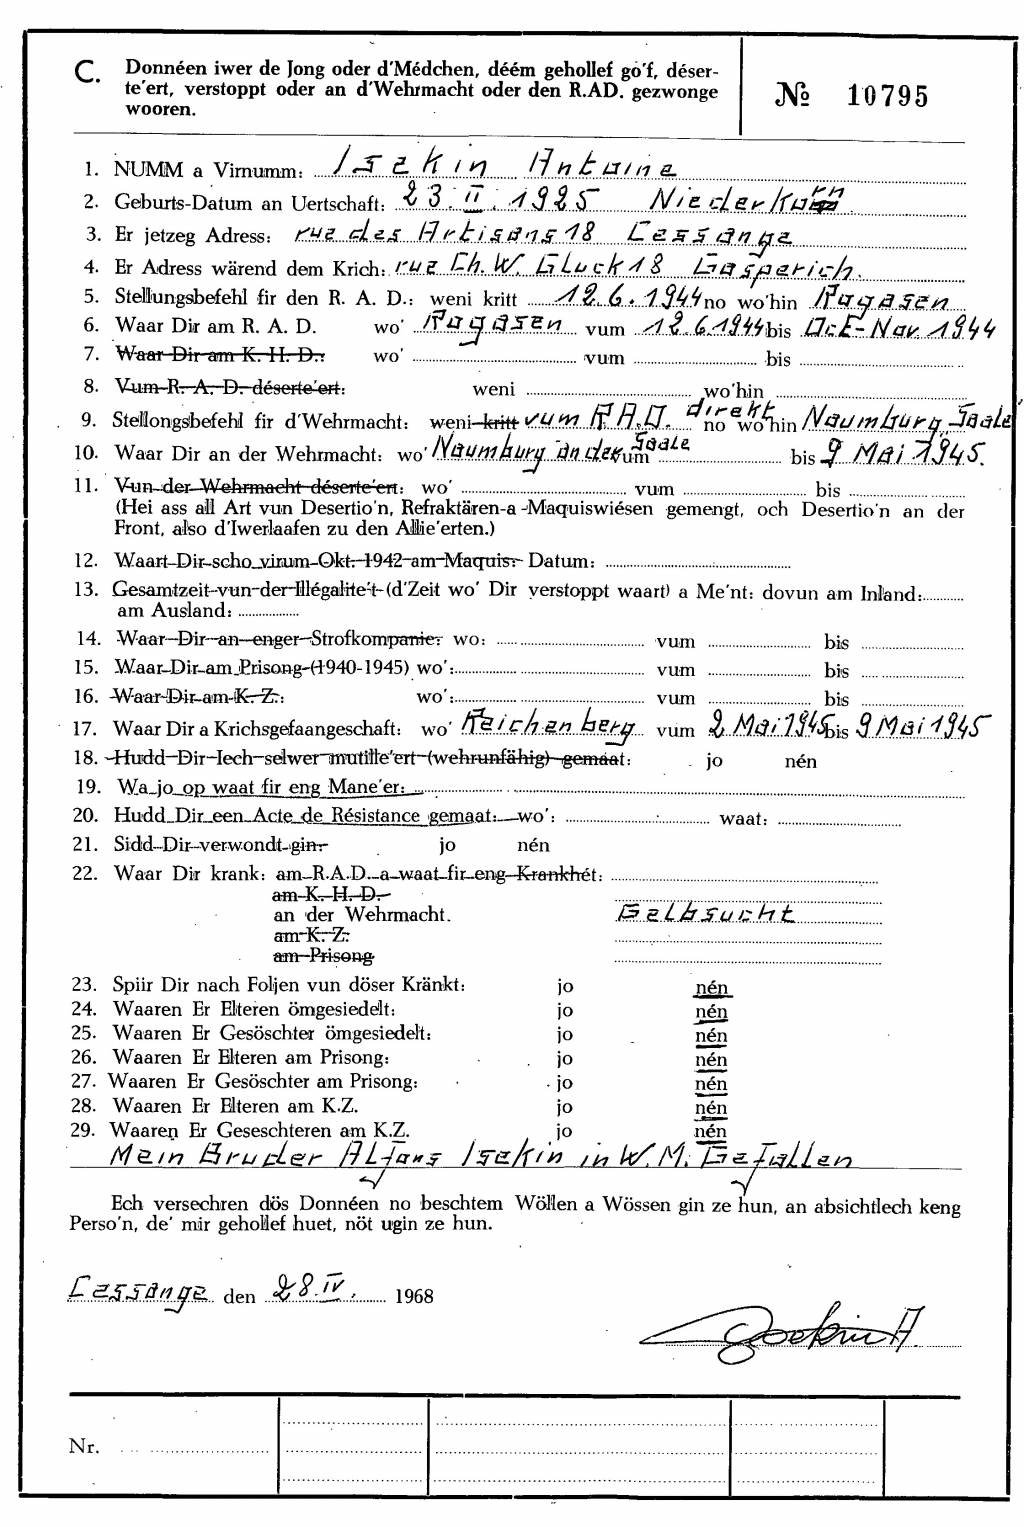 C. Donnéen iwer de Jong oder d'Médchen, déém gehollef go'f, déser-
te'ert, verstoppt oder an d'Wehrmacht oder den R.AD. gezwonge
wooren.
№ 10795
1. NUMM a Virnumm: Isekin Antoine
2. Geburts-Datum an Uertschaft: 23. II. 1925 Niederkorn
3. Er jetzeg Adress: rue des Artisans 18 Cessange
4. Er Adress wärend dem Krich: rue Ch. W. Gluck 18 Gasperich.
5. Stellungsbefehl fir den R. A. D.: weni kritt 12.6.1944 no wo'hin Rugasen
6. Waar Dir am R. A. D. wo' Rugasen vum 12.6.1944 bis Oct-Nov. 1944
7. Waar Dir am K. H. D.: wo' vum bis
8. Vum R. A. D. déserte'ert: weni wo'hin
9. Stellongsbefehl fir d'Wehrmacht: weni kritt vum R.A.D. direkt no wo'hin Naumburg Saale
10. Waar Dir an der Wehrmacht: wo' Naumburg an der Saale vum bis 9 Mai 1945.
11. Vun der Wehrmacht déserte'ert: wo' vum bis
(Hei ass all Art vun Desertio'n, Refraktären-a -Maquiswiésen gemengt, och Desertio'n an der
Front, also d'Iwerlaafen zu den Allie'erten.)
12. Waart Dir scho virum Okt. 1942 am Maquis: Datum:
13. Gesamtzeit vun der Illégalite't (d'Zeit wo' Dir verstoppt waart) a Me'nt: dovun am Inland:
am Ausland:
14. Waar Dir an enger Strofkompanie: wo: vum bis
15. Waar Dir am Prisong (1940-1945) wo': vum bis
16. Waar Dir am K. Z.: wo': vum bis
17. Waar Dir a Krichsgefaangeschaft: wo' Reichenberg vum 2 Mai 1945 bis 9 Mai 1945
18. Hudd Dir Iech selwer mutille'ert (wehrunfähig) gemaat: jo nén
19. Wa jo op waat fir eng Mane'er:
20. Hudd Dir een Acte de Résistance gemaat: wo': waat:
21. Sidd Dir verwondt gin: jo nén
22. Waar Dir krank: am R.A.D. a waat fir eng Krankhét:
am K. H. D.
an der Wehrmacht. Gelbsucht
am K. Z.
am Prisong
23. Spiir Dir nach Foljen vun döser Kränkt: jo nén
24. Waaren Er Elteren ömgesiedelt: jo nén
25. Waaren Er Gesöschter ömgesiedelt: jo nén
26. Waaren Er Elteren am Prisong: jo nén
27. Waaren Er Gesöschter am Prisong: jo nén
28. Waaren Er Elteren am K.Z. jo nén
29. Waaren Er Geseschteren am K.Z. jo nén
Mein Bruder Alfons Isekin in W.M. Gefallen
Ech versechren dös Donnéen no beschtem Wöllen a Wössen gin ze hun, an absichtlech keng
Perso'n, de' mir gehollef huet, nöt ugin ze hun.
Cessange den 28. IV. 1968
Nr.